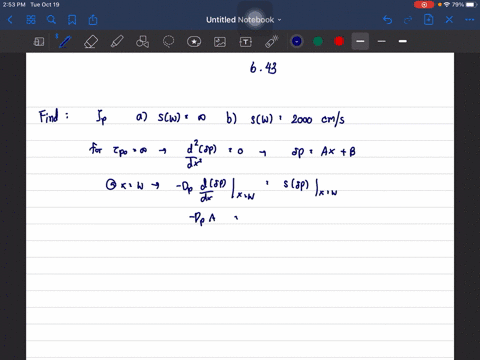 2:53 PM Tue Oct 19
79%
Untitled Notebook
6.43
Find: Jp a) s(W) = ∞ b) s(W) = 2000 cm/s
For τpo = ∞ → d²(δp)/dx² = 0 → δp = Ax + B
@ x = W → -Dp d(δp)/dx |x=W = s(δp)|x=W
-Dp A =